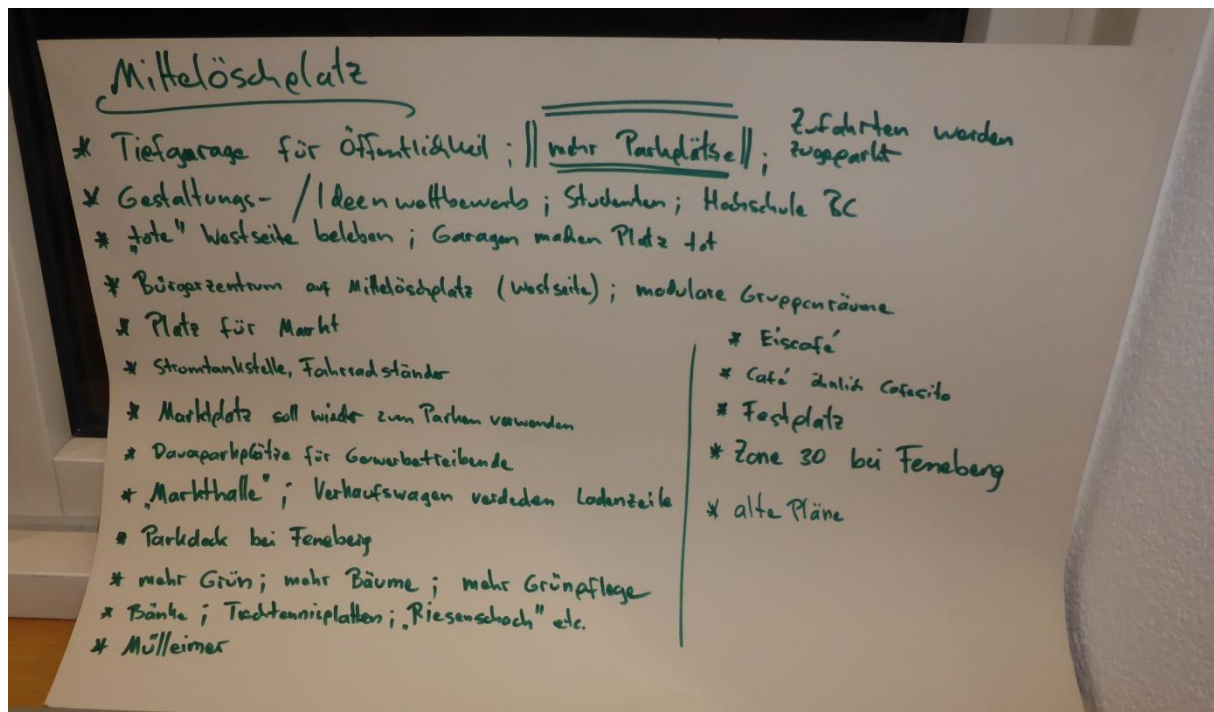 Mittelöschplatz
* Tiefgarage für Öffentlichkeit ; || mehr Parkplätze || ; Zufahrten werden zugeparkt
* Gestaltungs- / Ideenwettbewerb ; Studenten ; Hochschule BC
* „tote" Westseite beleben ; Garagen machen Platz tot
* Bürgerzentrum auf Mittelöschplatz (Westseite) ; modulare Gruppenräume
* Platz für Markt
* Stromtankstelle, Fahrradständer
* Marktplatz soll wieder zum Parken verwenden
* Dauerparkplätze für Gewerbetreibende
* „Markthalle" ; Verkaufswagen verdecken Ladenzeile
* Parkdeck bei Feneberg
* mehr Grün ; mehr Bäume ; mehr Grünpflege
* Bänke ; Tischtennisplatten ; „Riesenschach" etc.
* Mülleimer
* Eiscafé
* Café änlich Cafesito
* Festplatz
* Zone 30 bei Feneberg
* alte Pläne